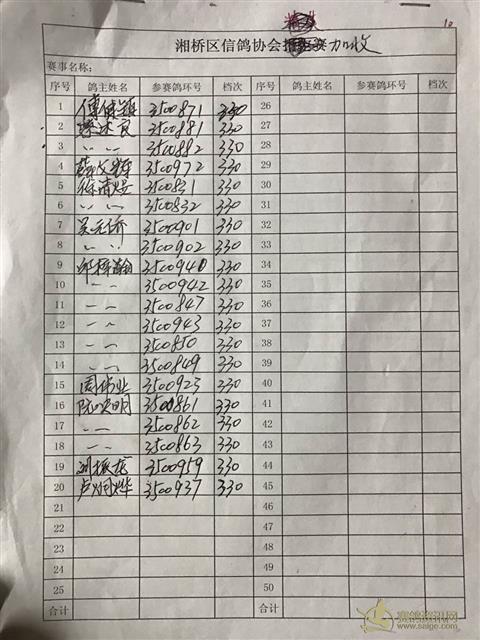 10
湘桥区信鸽协会 加收
赛事名称:
序号 鸽主姓名 参赛鸽环号 档次 序号 鸽主姓名 参赛鸽环号 档次
1 3500871 330 26
2 3500881 330 27
3 〃 〃 3500882 330 28
4 3500972 330 29
5 3500831 330 30
6 〃 〃 3500832 330 31
7 吴元侨 3500901 330 32
8 〃 〃 3500902 330 33
9 3500940 330 34
10 〃 〃 3500942 330 35
11 〃 〃 3500847 330 36
12 〃 〃 3500943 330 37
13 〃 〃 3500850 330 38
14 〃 〃 3500849 330 39
15 周伟业 3500923 330 40
16 3500861 330 41
17 〃 〃 3500862 330 42
18 〃 〃 3500863 330 43
19 3500959 330 44
20 卢炯烨 3500937 330 45
21 46
22 47
23 48
24 49
25 50
合计 合计
赛鸽资讯网
www.saige.com